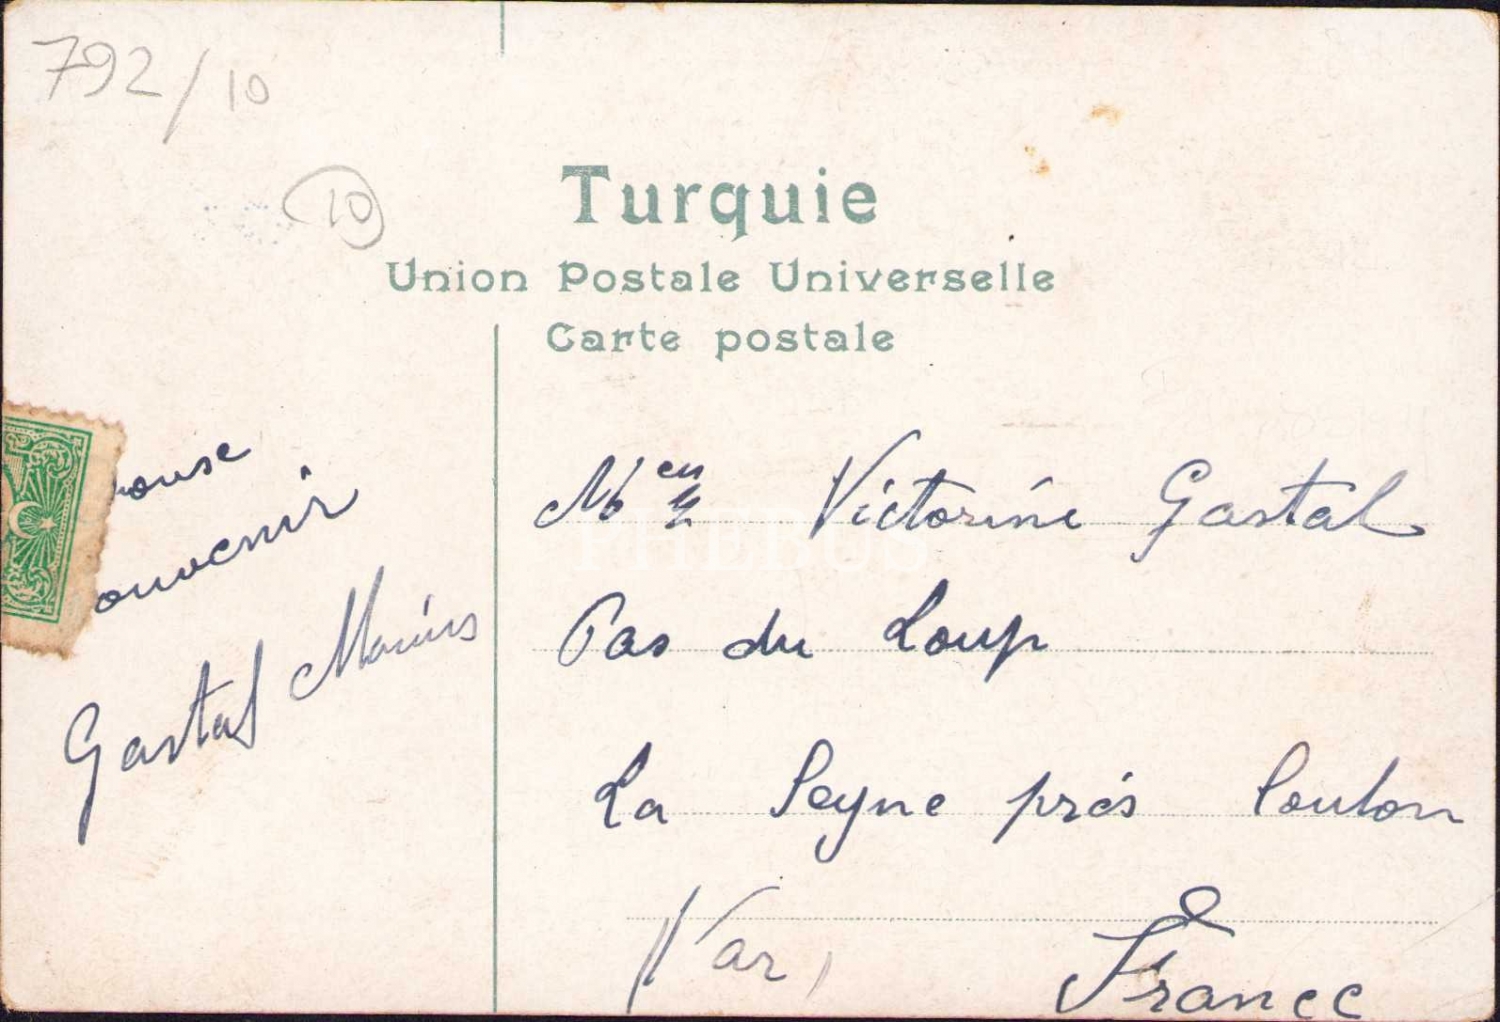 792/10
10
Turquie
Union Postale Universelle
Carte postale
ouvenir
Gastal Marius
Victorine Gastal
Pas du Loup
La Seyne près Toulon
(Var)
France
PHEBUS